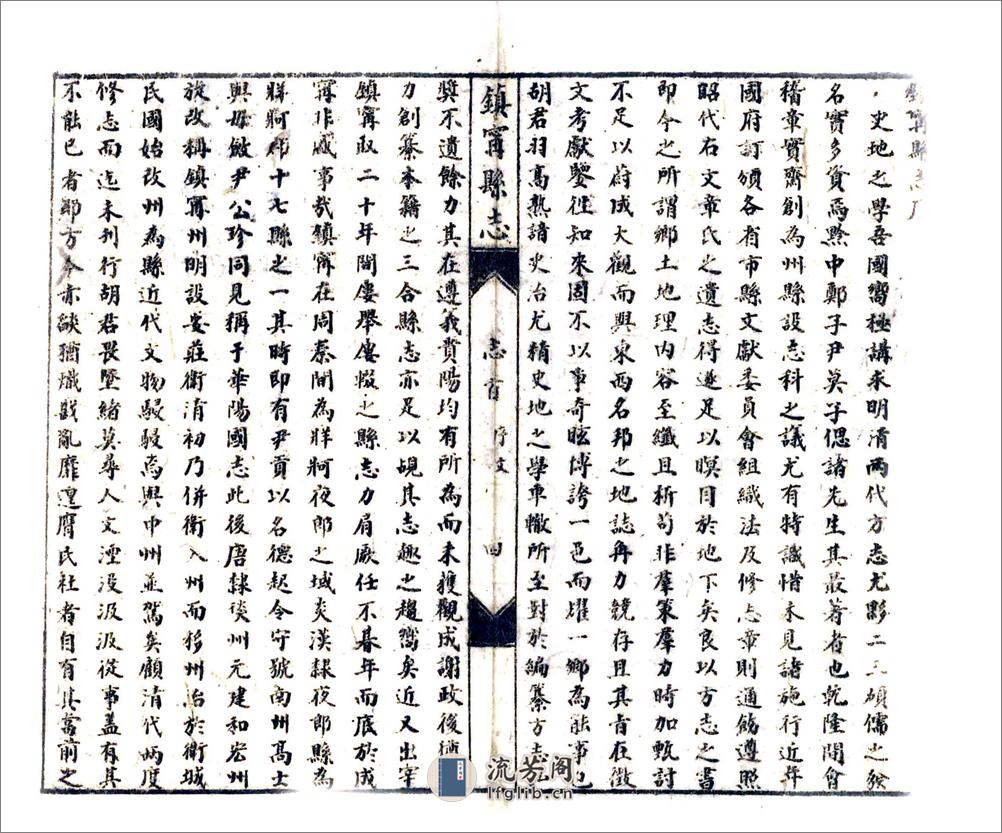 鎮甯縣志序
史地之學吾國嚮極講求明清兩代方志尤夥二三碩儒之殫
名實多貲焉黔中鄭子尹莫子偲諸先生其最著者也乾隆間會
稽章實齋創為州縣設志科之議尤有特識惜未見諸施行近年
國府訂頒各省市縣文獻委員會組織法及修志章則通飭遵照
昭代右文章氏之遺志得遂足以瞑目於地下矣良以方志之書
即今之所謂鄉土地理內容至纖且析苟非羣策羣力時加甄討
不足以蔚成大觀而與東西名邦之地誌角力競存且其旨在徵
文考獻鑒往知來固不以爭奇眩博誇一邑而耀一鄉為能事也
胡君羽高熟諳史治尤精史地之學車轍所至對於編纂方志
鎮甯縣志
志首
序文
四
獎不遺餘力其在遵義貴陽均有所為而未獲觀成謝政後
力創纂本籍之三合縣志亦足以覘其志趣之趨嚮矣近又出宰
鎮甯取二十年間屢舉屢輟之縣志力肩厥任不朞年而底於成
甯非盛事哉鎮甯在周秦間為牂牁夜郎之域炎漢隸夜郎縣為
牂牁郡十七縣之一其時即有尹貢以名德起令守號南州高士
與毋斂尹公珍同見稱于華陽國志此後唐隸琰州元建和宏州
旋改稱鎮甯州明設安莊衛清初乃併衛入州而移州治於衛城
民國始改州為縣近代文物駸駸焉與中州並駕矣顧清代兩度
修志而迄未刊行胡君畏墜緒莫尋人文湮沒汲汲從事蓋有其
不能已者耶方今赤燄猶熾戡亂靡遑膺民社者自有其當前之
流芳阁
lfglib.cn